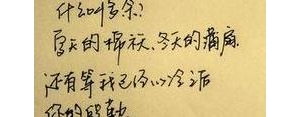 什么叫多余?
夏天的棉袄、冬天的蒲扇
还有等我已经心冷之后
你的殷勤